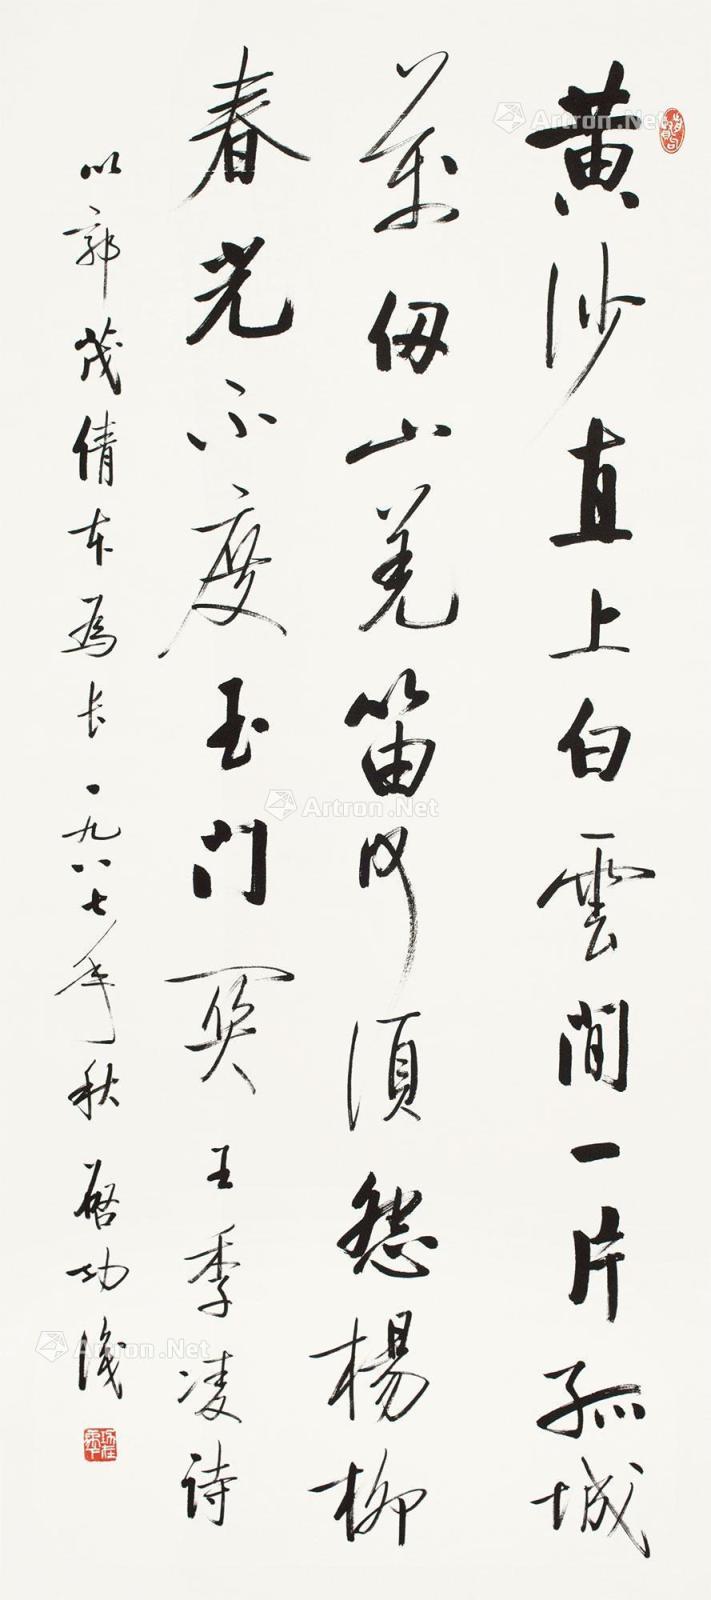 黄沙直上白雲間一片孤城
萬仞山羌笛何須怨楊柳
春光不度玉門関王季凌诗
以郭茂倩本爲长一九八七年秋啓功識
Artron.Net
Artron.Net
Artron.Net